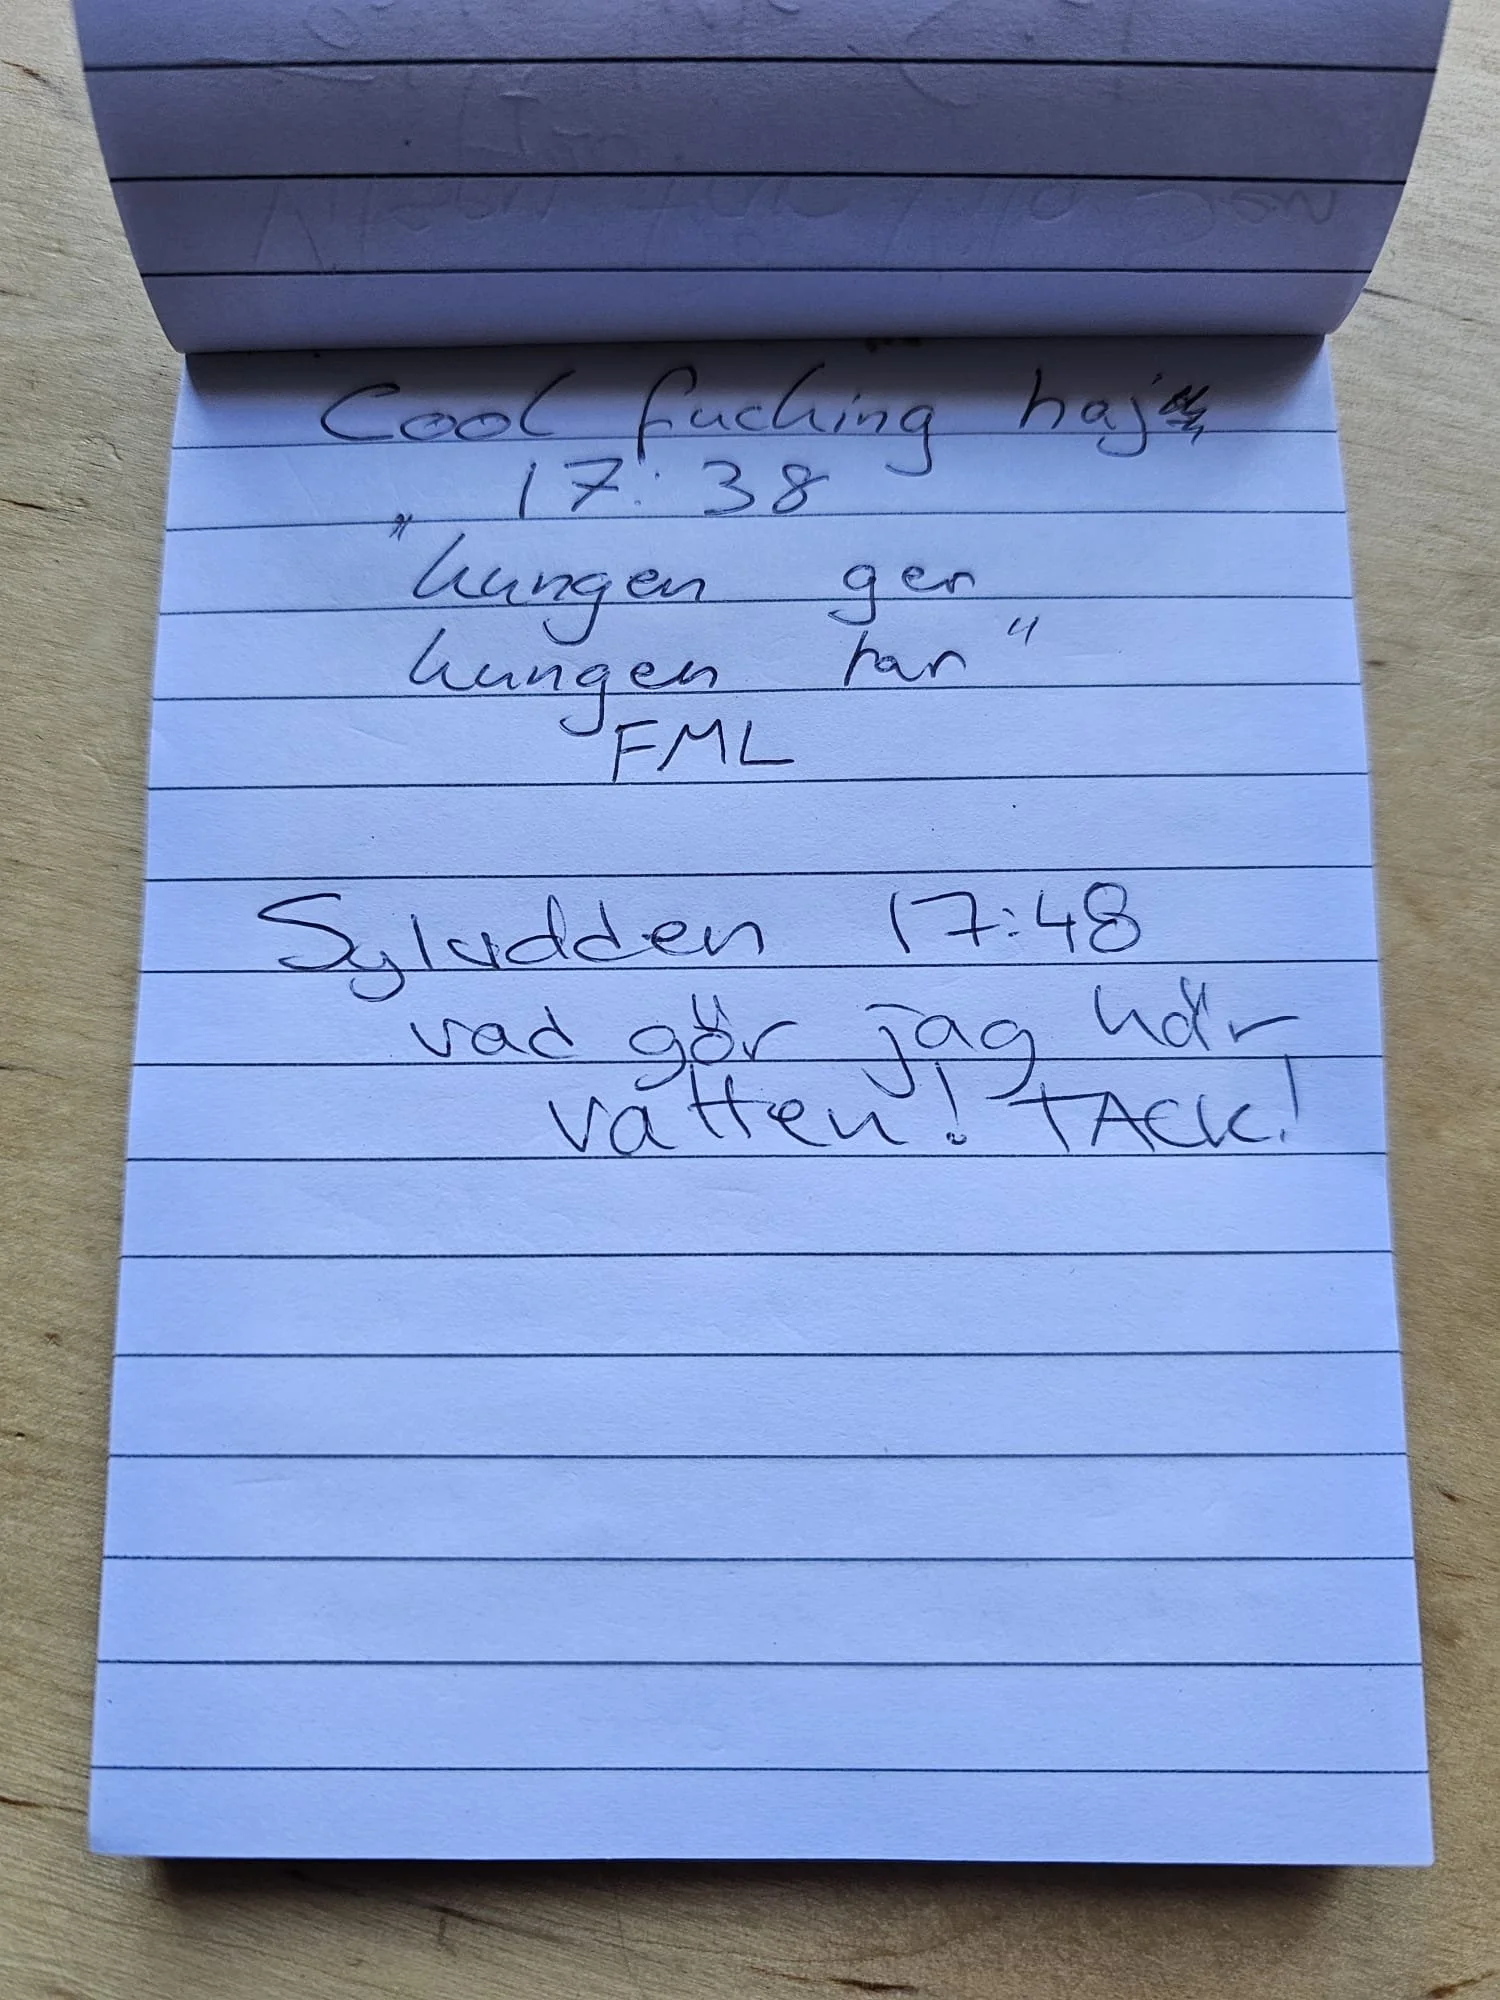 Cool fucking haj
17:38
"kungen ger
kungen tar"
FML
Sylvdden 17:48
vad gör jag här
vatten! TACK!